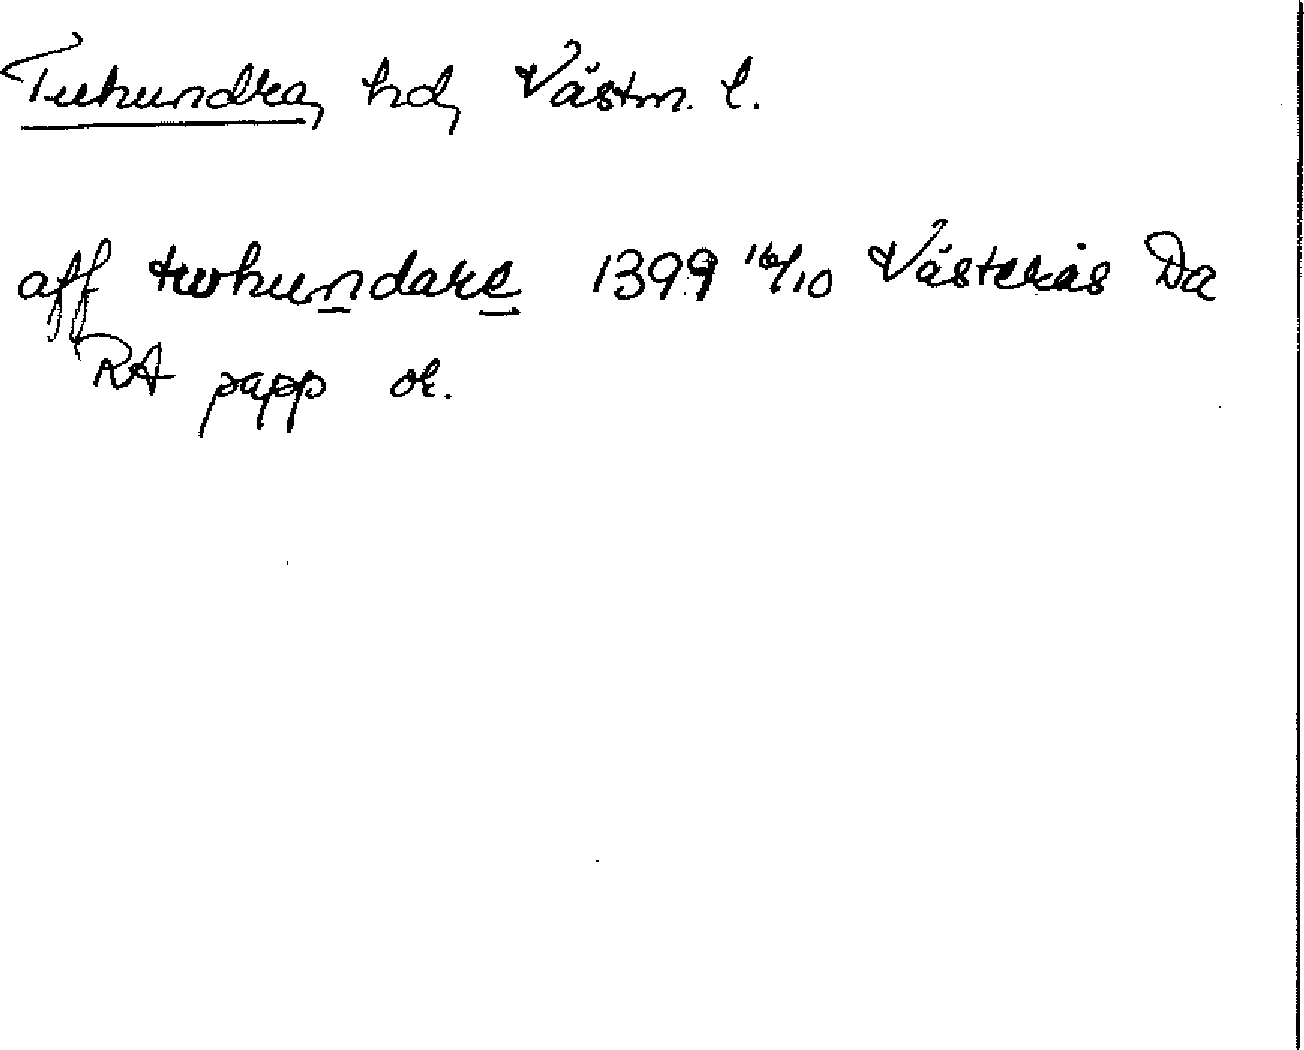 Tuhundra, hd, Västm. l.
aff twhundare 1399 16/10 Västerås Da
RA papp or.